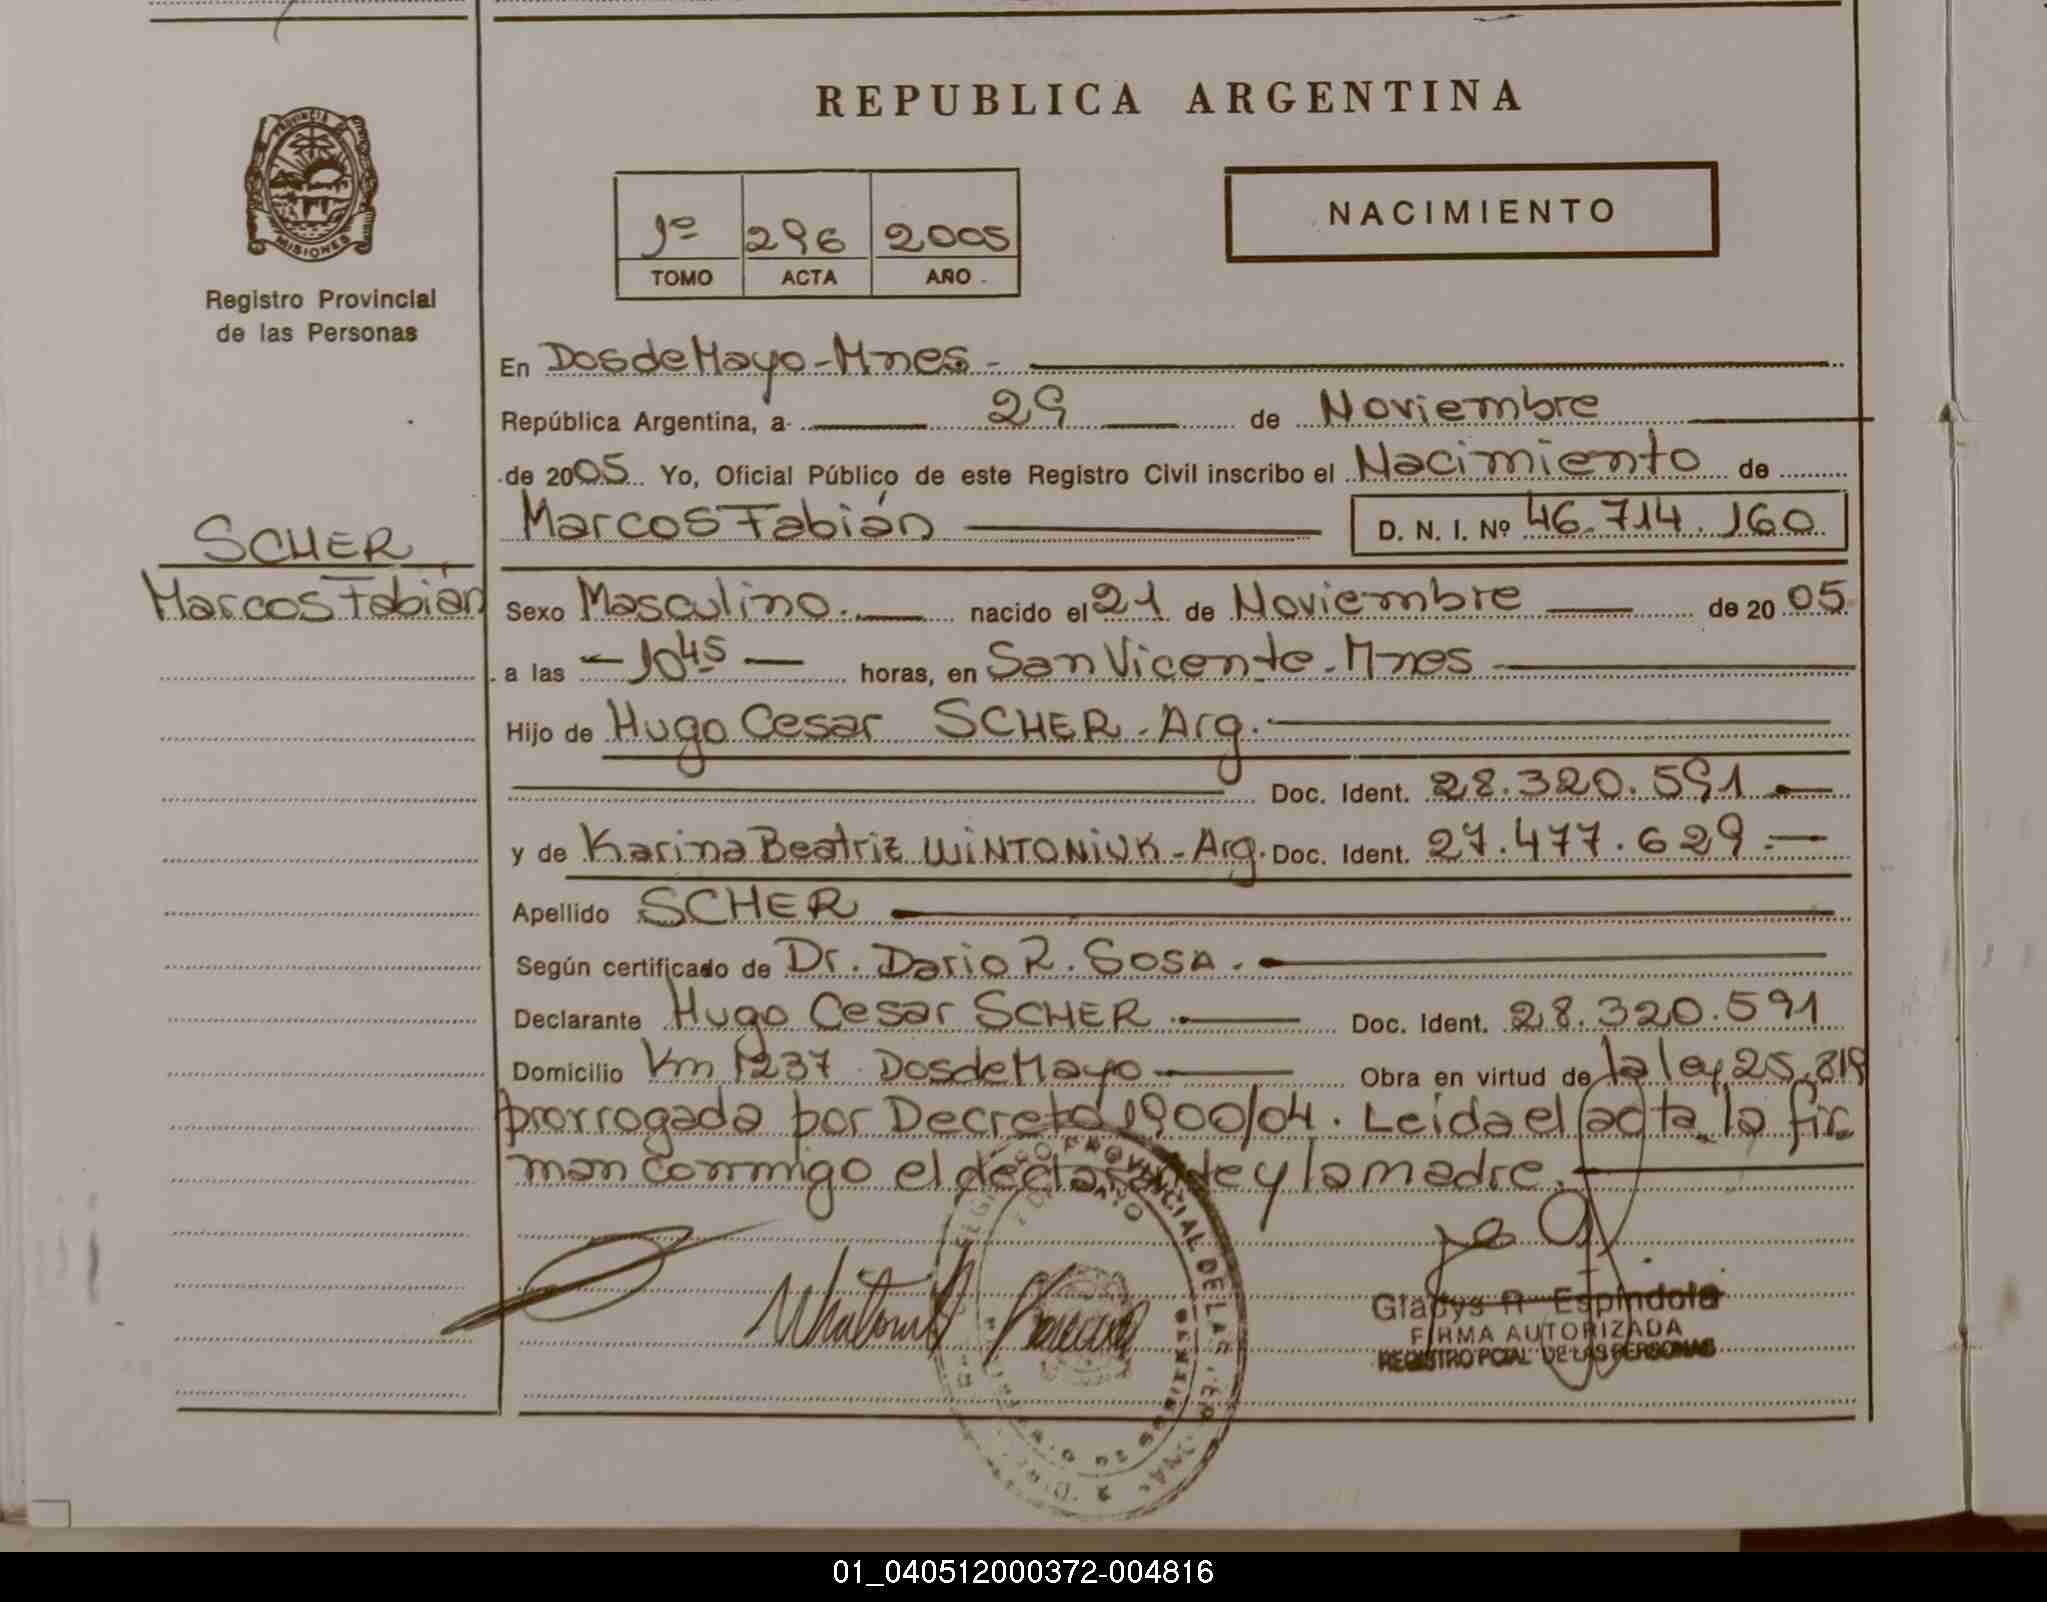 REPUBLICA ARGENTINA
PROVINCIA DE
MISIONES
Registro Provincial
de las Personas
1º 296 2005
TOMO ACTA AÑO
NACIMIENTO
En Dos de Mayo - Mnes -
República Argentina, a 29 de Noviembre
de 2005 Yo, Oficial Público de este Registro Civil inscribo el Nacimiento de
Marcos Fabián D. N. I. Nº 46.714.160
SCHER
Marcos Fabián
Sexo Masculino. nacido el 21 de Noviembre de 20 05
a las - 10 45 - horas, en San Vicente - Mnes
Hijo de Hugo Cesar SCHER - Arg.
Doc. Ident. 28.320.591
y de Karina Beatriz WINTONIUK - Arg. Doc. Ident. 27.477.629.-
Apellido SCHER
Según certificado de Dr. Dario R. SOSA.
Declarante Hugo Cesar SCHER Doc. Ident. 28.320.591
Domicilio Km 1237 Dos de Mayo Obra en virtud de la ley 25.819
prorrogada por Decreto 1900/04. Leida el acta, la fir
man conmigo el declarante y la madre.
PROVINCIAL DE LAS
Gladys R Espindola
FIRMA AUTORIZADA
REGISTRO PCIAL DE LAS PERSONAS
01_040512000372-004816